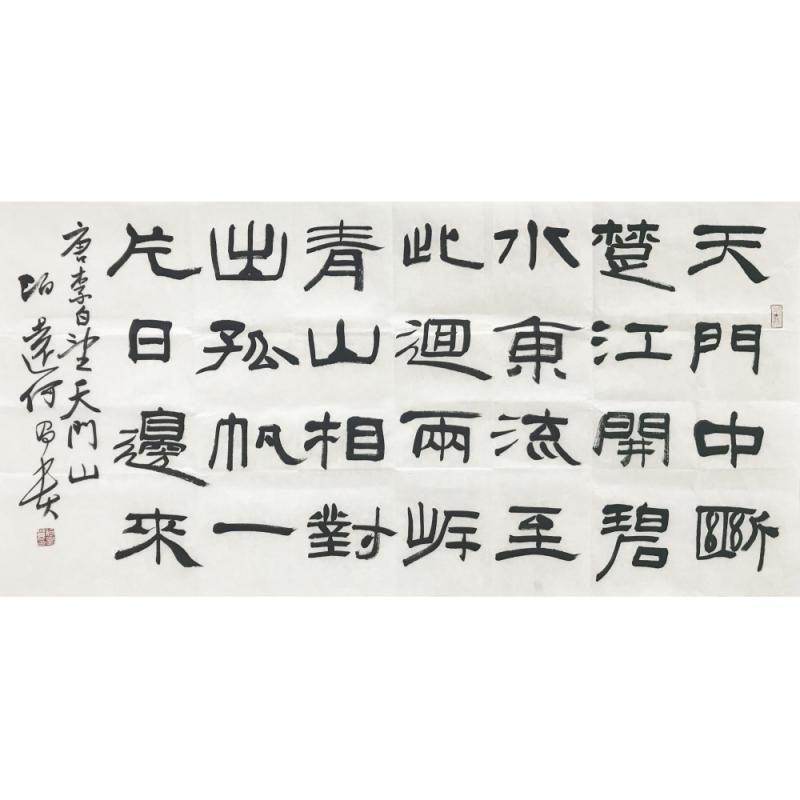 天門中斷
楚江開碧
水東流至
此迴兩岸
青山相對
出孤帆一
片日邊來
唐李白望天門山